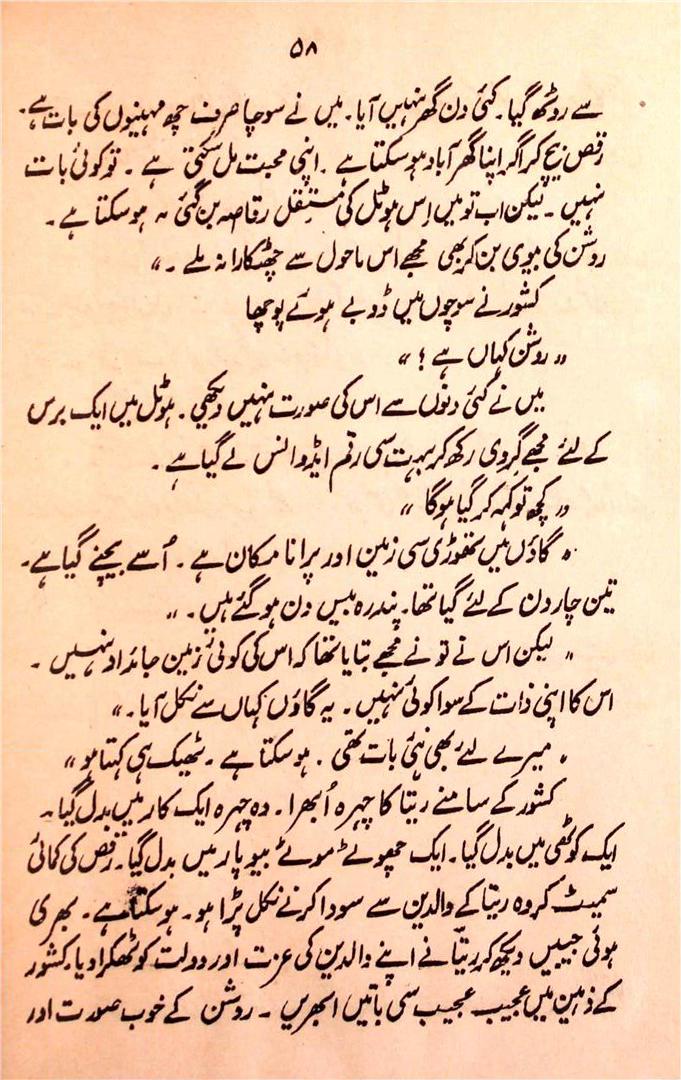 ۵۸
سے روٹھ گیا۔ کئی دن گھر نہیں آیا۔ میں نے سوچا صرف چھ مہینوں کی بات ہے۔
رقص بیچ کر اگر اپنا گھر آباد ہو سکتا ہے۔ اپنی محبت مل سکتی ہے۔ تو کوئی بات
نہیں۔ لیکن اب تو میں اِس ہوٹل کی مستقل رقاصہ بن گئی ہوں۔ ہو سکتا ہے۔
روشن کی بیوی بن کر بھی مجھے اس ماحول سے چھٹکارا نہ ملے۔"
کشور نے سوچوں میں ڈوبے ہوئے پوچھا
"روشن کہاں ہے؟"
میں نے کئی دنوں سے اس کی صورت نہیں دیکھی۔ ہوٹل میں ایک برس
کے لئے مجھے گروی رکھ کر بہت سی رقم ایڈوانس لے گیا ہے۔
"کچھ تو کہہ کر گیا ہوگا"
"گاؤں میں تھوڑی سی زمین اور پرانا مکان ہے۔ اُسے بیچنے گیا ہے۔
تین چار دن کے لئے گیا تھا۔ پندرہ بیس دن ہو گئے ہیں۔"
"لیکن اس نے تو نے مجھے بتایا تھا کہ اس کی کوئی زمین جائداد نہیں۔
اس کا اپنی ذات کے سوا کوئی نہیں۔ یہ گاؤں کہاں سے نکل آیا۔"
"میرے لئے بھی نئی بات تھی۔ ہو سکتا ہے۔ ٹھیک ہی کہتا ہو"
کشور کے سامنے ریتا کا چہرہ اُبھرا۔ وہ چہرہ ایک کار میں بدل گیا۔
ایک کوٹھی میں بدل گیا۔ ایک چھوٹے موٹے بیوپار میں بدل گیا۔ رقص کی کمائی
سمیٹ کر وہ ریتا کے والدین سے سودا کرنے نکل پڑا ہو۔ ہو سکتا ہے۔ بھری
ہوئی جیبیں دیکھ کر ریتا نے اپنے والدین کی عزت اور دولت کو ٹھکرا دیا۔ کشور
کے ذہن میں عجیب عجیب سی باتیں ابھریں۔ روشن کے خوب صورت اور